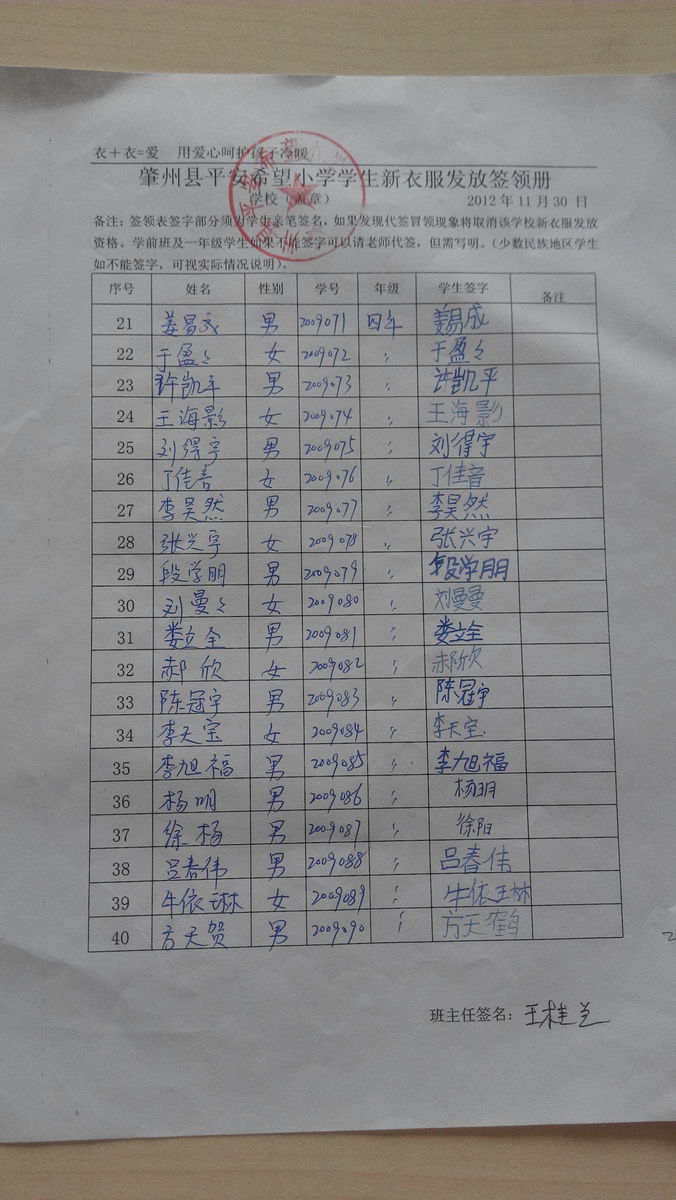 衣+衣=爱 用爱心呵护孩子冷暖
肇州县平安希望小学学生新衣服发放签领册
学校(盖章) 2012年11月30日
备注:签领表签字部分须为学生亲笔签名,如果发现代签冒领现象将取消该学校新衣服发放
资格。学前班及一年级学生如果不能签字可以请老师代签,但需写明。(少数民族地区学生
如不能签字,可视实际情况说明)。
序号 姓名 性别 学号 年级 学生签字 备注
21 姜昌成 男 2009071 四年 姜易成
22 于盈々 女 2009072 〃 于盈々
23 许凯平 男 2009073 〃 许凯平
24 王海影 女 2009074 〃 王海影
25 刘得宇 男 2009075 〃 刘得宇
26 丁佳音 女 2009076 〃 丁佳音
27 李昊然 男 2009077 〃 李昊然
28 张兴宇 女 2009078 〃 张兴宇
29 段学朋 男 2009079 〃 段学朋
30 刘曼々 女 2009080 〃 刘曼曼
31 娄立全 男 2009081 〃 娄立全
32 郝欣 女 2009082 〃 郝欣
33 陈冠宇 男 2009083 〃 陈冠宇
34 李天宝 女 2009084 〃 李天宝
35 李旭福 男 2009085 〃 李旭福
36 杨明 男 2009086 〃 杨明
37 徐杨 男 2009087 〃 徐阳
38 吕春伟 男 2009088 〃 吕春伟
39 牛依琳 女 2009089 〃 牛依琳
40 方天贺 男 2009090 〃 方天鹤
班主任签名:王桂兰